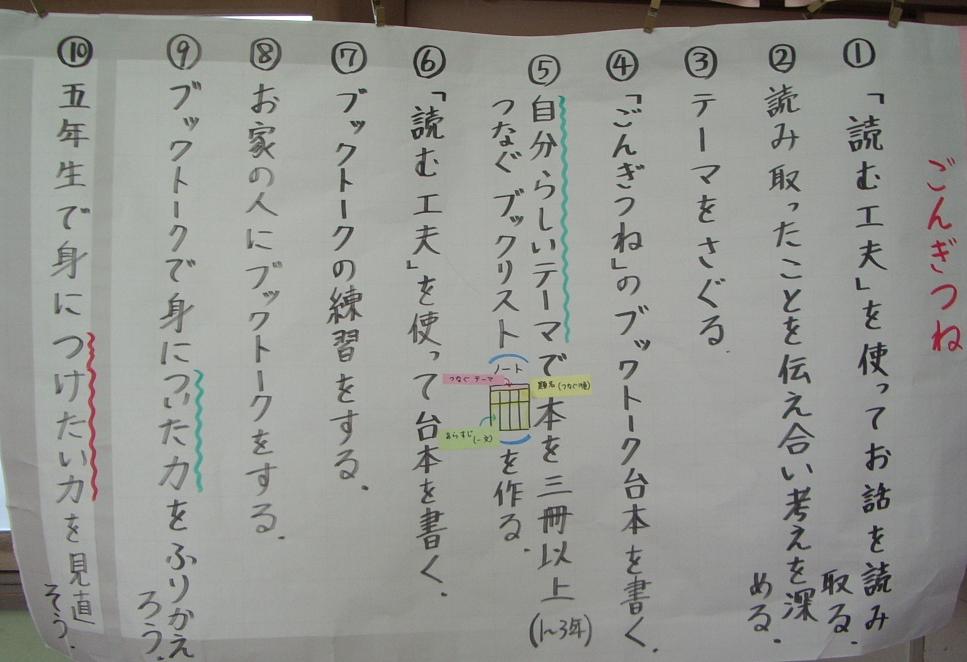 ごんぎつね
①「読む工夫」を使ってお話を読み
取る.
②読み取ったことを伝え合い考えを深
める.
③テーマをさぐる.
④「ごんぎつね」のブックトーク台本を書く.
⑤自分らしいテーマで本を三冊以上(1~3年)
つなぐブックリスト
ノート
つなぐテーマ
題名(つなぐ順)
あらすじ(一文)
を作る.
⑥「読む工夫」を使って台本を書く.
⑦ブックトークの練習をする.
⑧お家の人にブックトークをする.
⑨ブックトークで身についた力をふりかえ
ろう.
⑩五年生で身につけたい力を見直
そう.